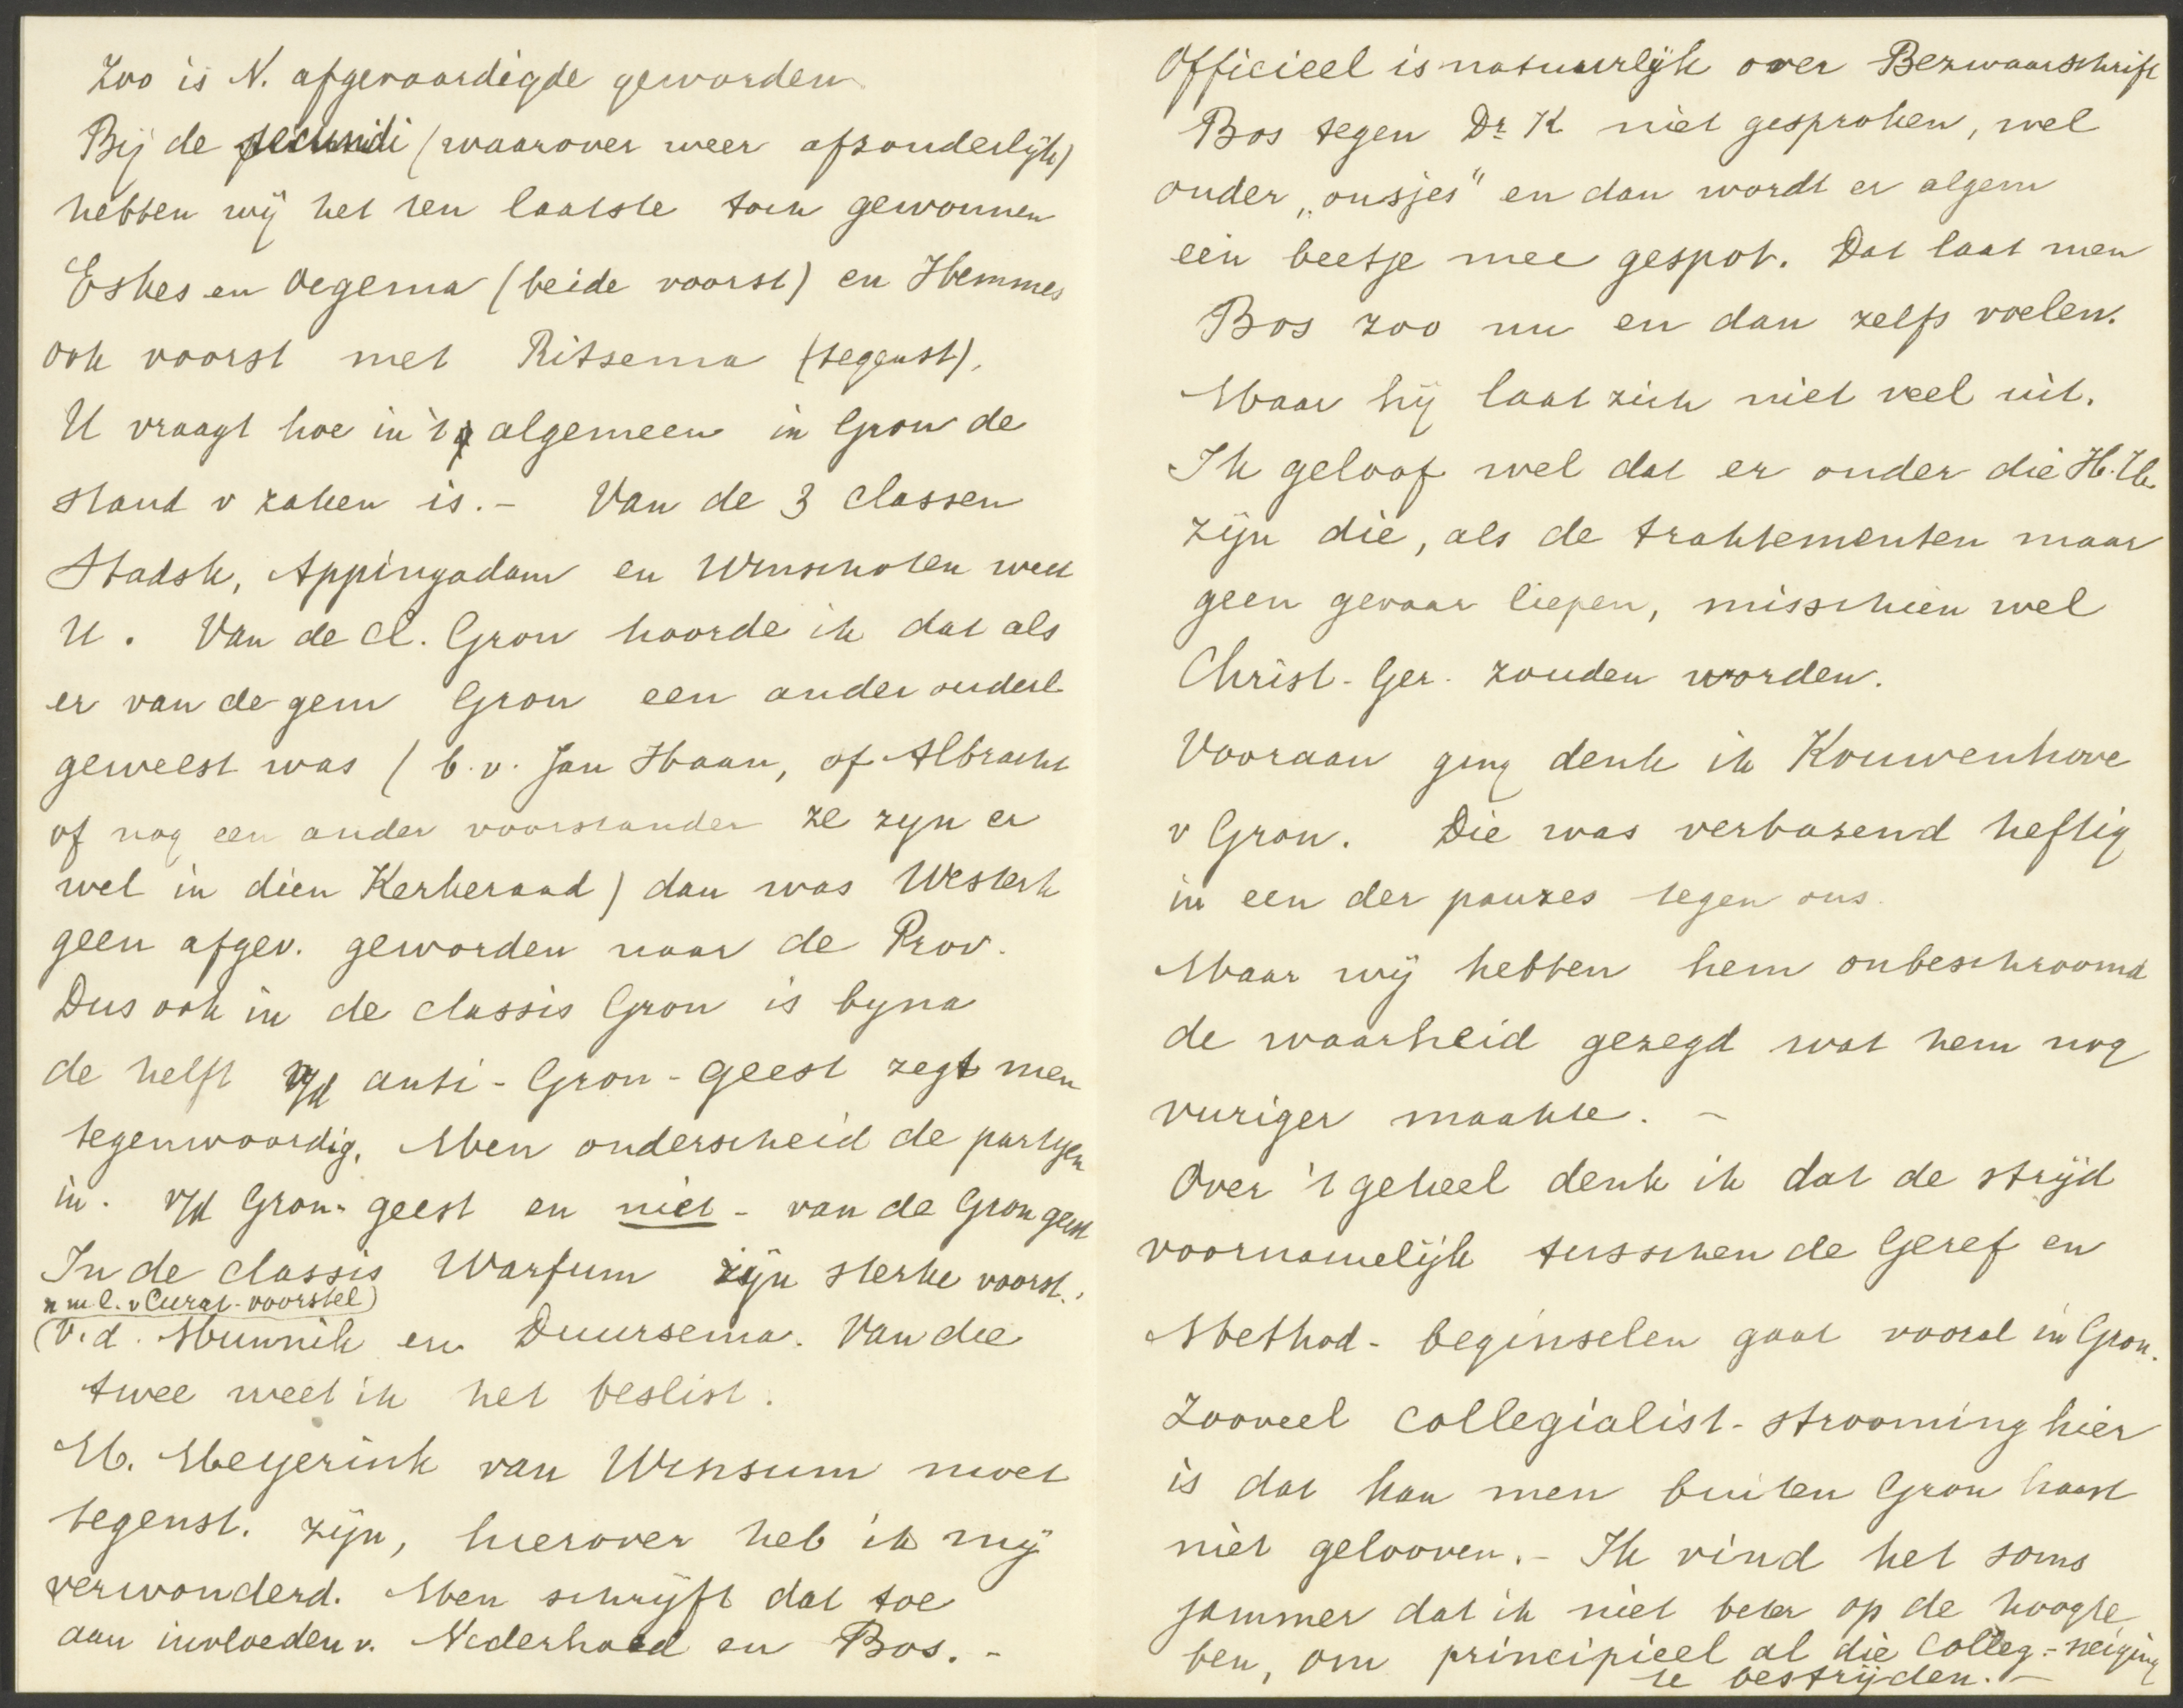 Zoo is N. afgevaardigde geworden
Bij de secundi (waarover weer afzonderlijk)
hebben wij het ten laatste toch gewonnen
Eskes en Oegema (beide voorst) en Hemmes
ook voorst met Ritsema (tegenst).
U vraagt hoe in 't algemeen in Gron de
stand v zaken is. - Van de 3 classen
Stadsk, Appingadam en Winschoten weet
U. Van de Cl. Gron hoorde ik dat als
er van de gem Gron een ander ouderl
geweest was (b.v. Jan Haan, of Albracht
of nog een ander voorstander ze zyn er
wel in dien Kerkeraad) dan was Westerh
geen afgev. geworden naar de Prov.
Dus ook in de classis Gron is byna
de helft v/d anti-Gron-geest zegt men
tegenwoordig. Men onderscheid de partyen
in. v/d Gron-geest en niet - van de Gron geest
In de classis Warfum zijn sterke voorst.,
n m l. v Curat-voorstel)
(V.d. Munnik en Duursema. Van die
twee weet ik het beslist.
M. Meyerink van Winsum moet
tegenst. zijn, hierover heb ik mij
verwonderd. Men schrijft dat toe
aan invloeden v. Nederhoed en Bos. -
Officieel is natuurlijk over Bezwaarschrift
Bos tegen Dr. K niet gesproken, wel
onder „onsjes" en dan wordt er algem
een beetje mee gespot. Dat laat men
Bos zoo nu en dan zelfs voelen.
Maar hij laat zich niet veel uit.
Ik geloof wel dat er onder die H.H.
zijn die, als de traktementen maar
geen gevaar liepen, misschien wel
Christ-Ger. zouden worden.
Vooraan ging denk ik Kouwenhove
v Gron. Die was verbazend heftig
in een der pauzes tegen ons.
Maar wij hebben hem onbeschroomd
de waarheid gezegd wat hem nog
vuriger maakte. -
Over 't geheel denk ik dat de strijd
voornamelijk tusschen de Geref en
Method-beginselen gaat vooral in Gron.
Zooveel collegialist-strooming hier
is dat kan men buiten Gron haast
niet gelooven. - Ik vind het soms
jammer dat ik niet beter op de hoogte
ben, om principieel al die Colleg-neiging
te bestrijden. -